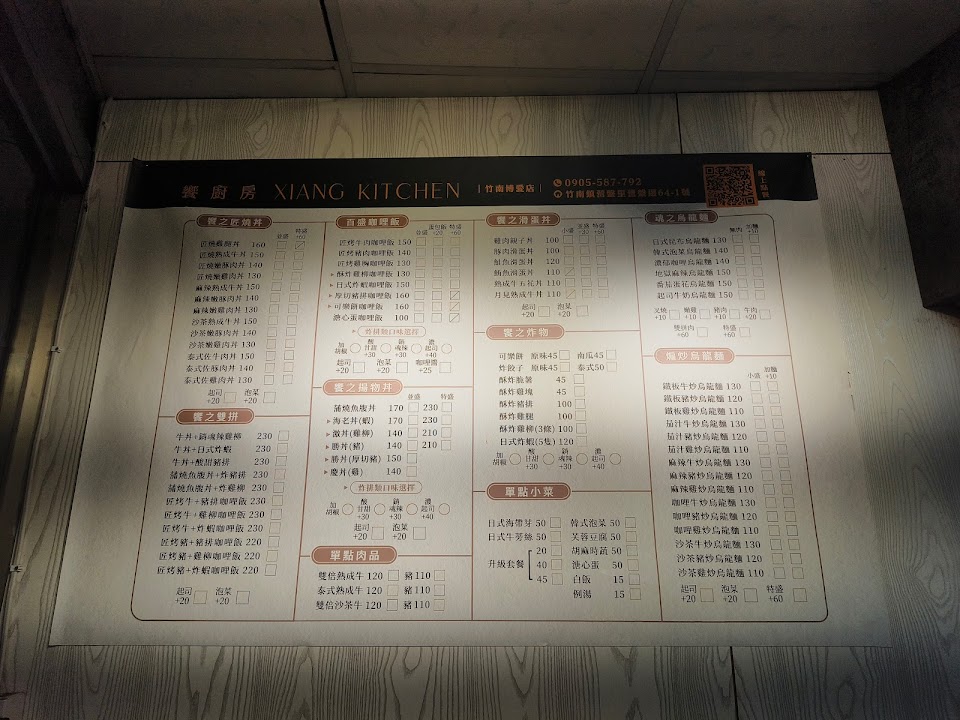 饗廚房 XIANG KITCHEN |竹南博愛店| 0905-587-792
64-1號
線上點餐
饗之匠燒丼
並盛 特盛+60
匠燒雞腿丼 160
匠燒熟成牛丼 150
匠燒嫩豚肉丼 140
匠燒嫩雞肉丼 130
麻辣熟成牛丼 150
麻辣嫩豚肉丼 140
麻辣嫩雞肉丼 130
沙茶熟成牛丼 150
沙茶嫩豚丼 140
沙茶嫩雞丼 130
泰式佐牛肉丼 150
泰式佐豚肉丼 140
泰式佐雞肉丼 130
起司+20 泡菜+20
饗之雙拼
牛丼+銷魂辣雞柳 230
牛丼+日式炸蝦 230
牛丼+酸甜豬排 230
蒲燒魚腹丼+炸豬排 230
蒲燒魚腹丼+炸雞柳 230
匠烤牛+豬排咖哩飯 230
匠烤牛+雞柳咖哩飯 230
匠烤牛+炸蝦咖哩飯 230
匠烤豬+豬排咖哩飯 220
匠烤豬+雞柳咖哩飯 220
匠烤豬+炸蝦咖哩飯 220
起司+20 泡菜+20
百盛咖哩飯
並盛 蛋包飯+20 特盛+60
匠烤牛肉咖哩飯 150
匠烤豬肉咖哩飯 140
匠烤雞胸咖哩飯 130
酥炸雞柳咖哩飯 130
日式炸蝦咖哩飯 150
厚切豬排咖哩飯 160
可樂餅咖哩飯 160
溏心蛋咖哩飯 100
炸排類口味選擇
加胡椒 酸甘甜+30 銷魂辣+30 濃起司+40
起司+20 泡菜+20 咖哩醬+25
饗之揚物丼
並盛 特盛
蒲燒魚腹丼 170 230
海老丼(蝦) 170 230
激丼(雞柳) 140 210
勝丼(豬) 140 210
勝丼(厚切豬) 150
慶丼(雞) 140
炸排類口味選擇
加胡椒 酸甘甜+30 銷魂辣+30 濃起司+40
起司+20 泡菜+20
單點肉品
雙倍熟成牛 120 豬 110
泰式熟成牛 120 豬 110
雙倍沙茶牛 120 豬 110
饗之滑蛋丼
小盛 並盛+30 特盛+60
雞肉親子丼 100
豚肉滑蛋丼 100
魨魚滑蛋丼 120
鮪魚滑蛋丼 110
熟成牛五花丼 110
月見熟成牛丼 110
起司+20 泡菜+20
饗之炸物
可樂餅 原味45 南瓜45
炸餃子 原味45 泰式50
酥炸脆薯 45
酥炸雞塊 45
酥炸豬排 100
酥炸雞腿 100
酥炸雞柳(3條) 100
日式炸蝦(5隻) 120
加胡椒 酸甘甜+30 銷魂辣+30 濃起司+40
單點小菜
日式海帶芽 50 韓式泡菜 50
日式牛蒡絲 50 芙蓉豆腐 50
20 胡麻時蔬 50
升級套餐 40 溏心蛋 50
45 白飯 15
例湯 15
魂之烏龍麵
無肉 加麵+10
日式昆布烏龍麵 130
韓式泡菜烏龍麵 140
濃郁咖哩烏龍麵 140
地獄麻辣烏龍麵 150
番茄蛋花烏龍麵 150
起司牛奶烏龍麵 150
叉燒+10 嫩雞+10 豬肉+10 牛肉+20
雙拼肉+60 特盛+60
爆炒烏龍麵
小盛 加麵+10
鐵板牛炒烏龍麵 130
鐵板豬炒烏龍麵 120
鐵板雞炒烏龍麵 110
茄汁牛炒烏龍麵 130
茄汁豬炒烏龍麵 120
茄汁雞炒烏龍麵 110
麻辣牛炒烏龍麵 130
麻辣豬炒烏龍麵 120
麻辣雞炒烏龍麵 110
咖哩牛炒烏龍麵 130
咖哩豬炒烏龍麵 120
咖哩雞炒烏龍麵 110
沙茶牛炒烏龍麵 130
沙茶豬炒烏龍麵 120
沙茶雞炒烏龍麵 110
起司+20 泡菜+20 特盛+60